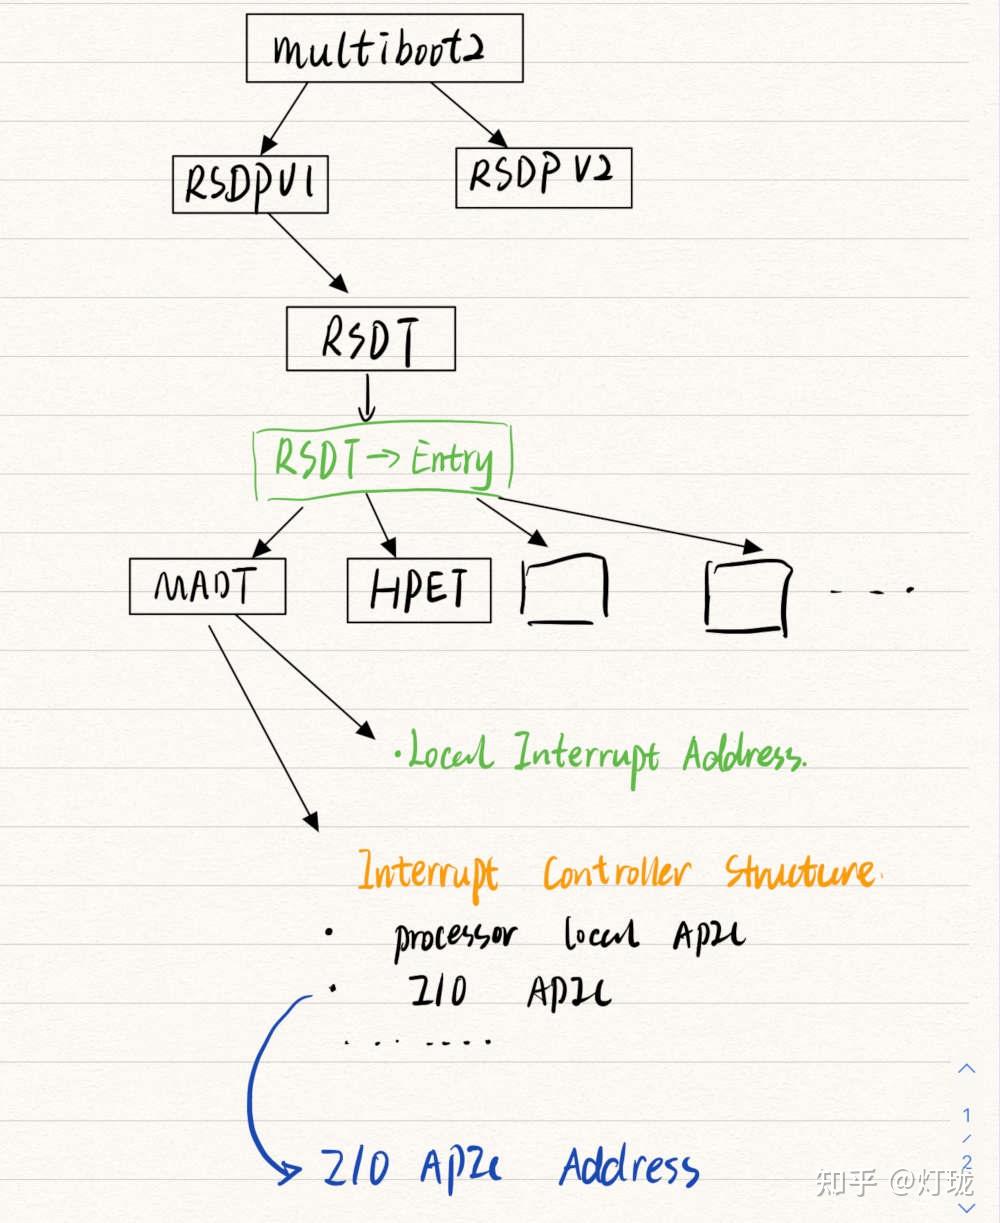 multiboot2
RSDPV1
RSDPV2
RSDT
RSDT→Entry
MADT
HPET
· Local Interrupt Address.
Interrupt Controller Structure.
· processor local APIC
· I/O APIC
I/O APIC Address
1
/
2
知乎 @灯珑